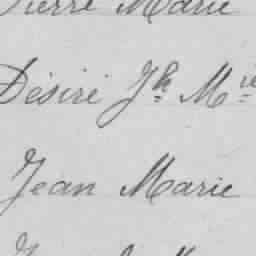 Pierre Marie
Désiré Jh Mie
Jean Marie